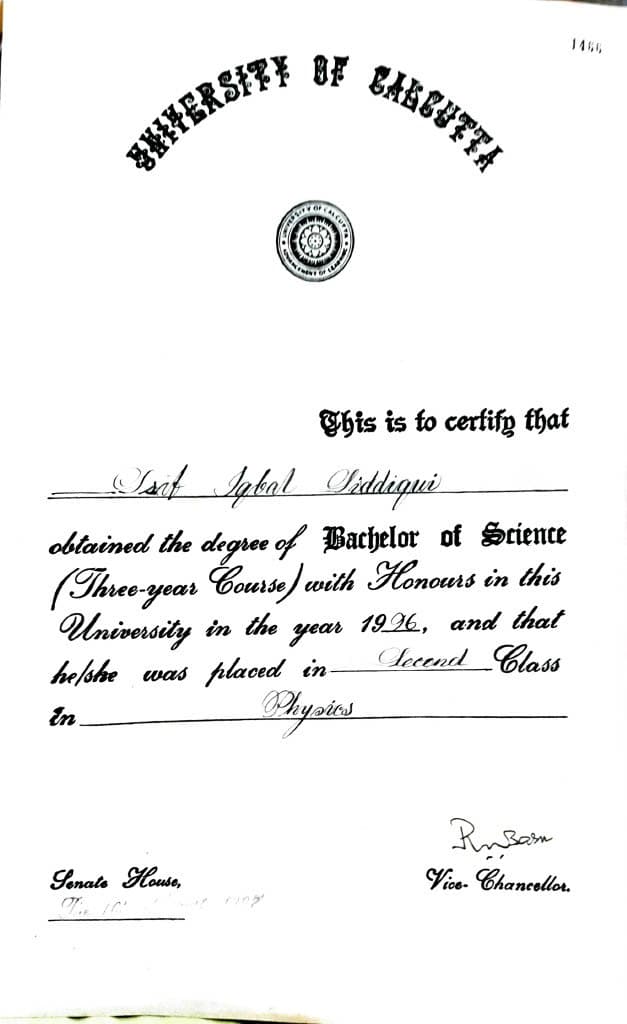 1466
UNIVERSITY OF CALCUTTA
UNIVERSITY OF CALCUTTA
ADVANCEMENT OF LEARNING
This is to certify that
Iqbal Siddiqui
obtained the degree of Bachelor of Science
(Three-year Course) with Honours in this
University in the year 1996, and that
he/she was placed in Second Class
in Physics
R N Basu
Senate House,
Vice-Chancellor.
The